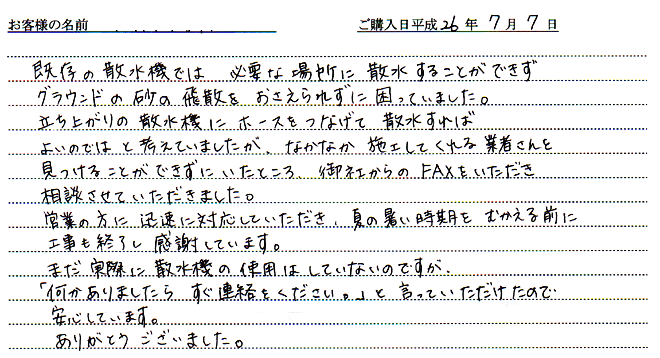 お客様の名前
ご購入日平成26年7月7日
既存の散水機では 必要な場所に 散水することができず
グラウンドの砂の飛散を おさえられずに困っていました。
立ち上がりの散水機に ホースをつなげて 散水すれば
よいのではと考えていましたが、なかなか 施工してくれる業者さんを
見つけることができずにいたところ、御社からのFAXをいただき
相談させていただきました。
営業の方に迅速に対応していただき、夏の暑い時期をむかえる前に
工事も終了し感謝しています。
まだ実際に散水機の使用はしていないのですが、
「何かありましたら すぐ連絡をください。」と言っていただけたので
安心しています。
ありがとうございました。